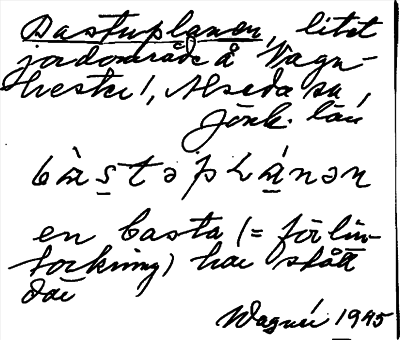 Bastuplanen, litet
jordområde å Vagn-
hester, Alseda sn,
Jönk. län
bàstəpLánən
en basta (= för lin-
torkning) har stått
där
Wagnér 1945